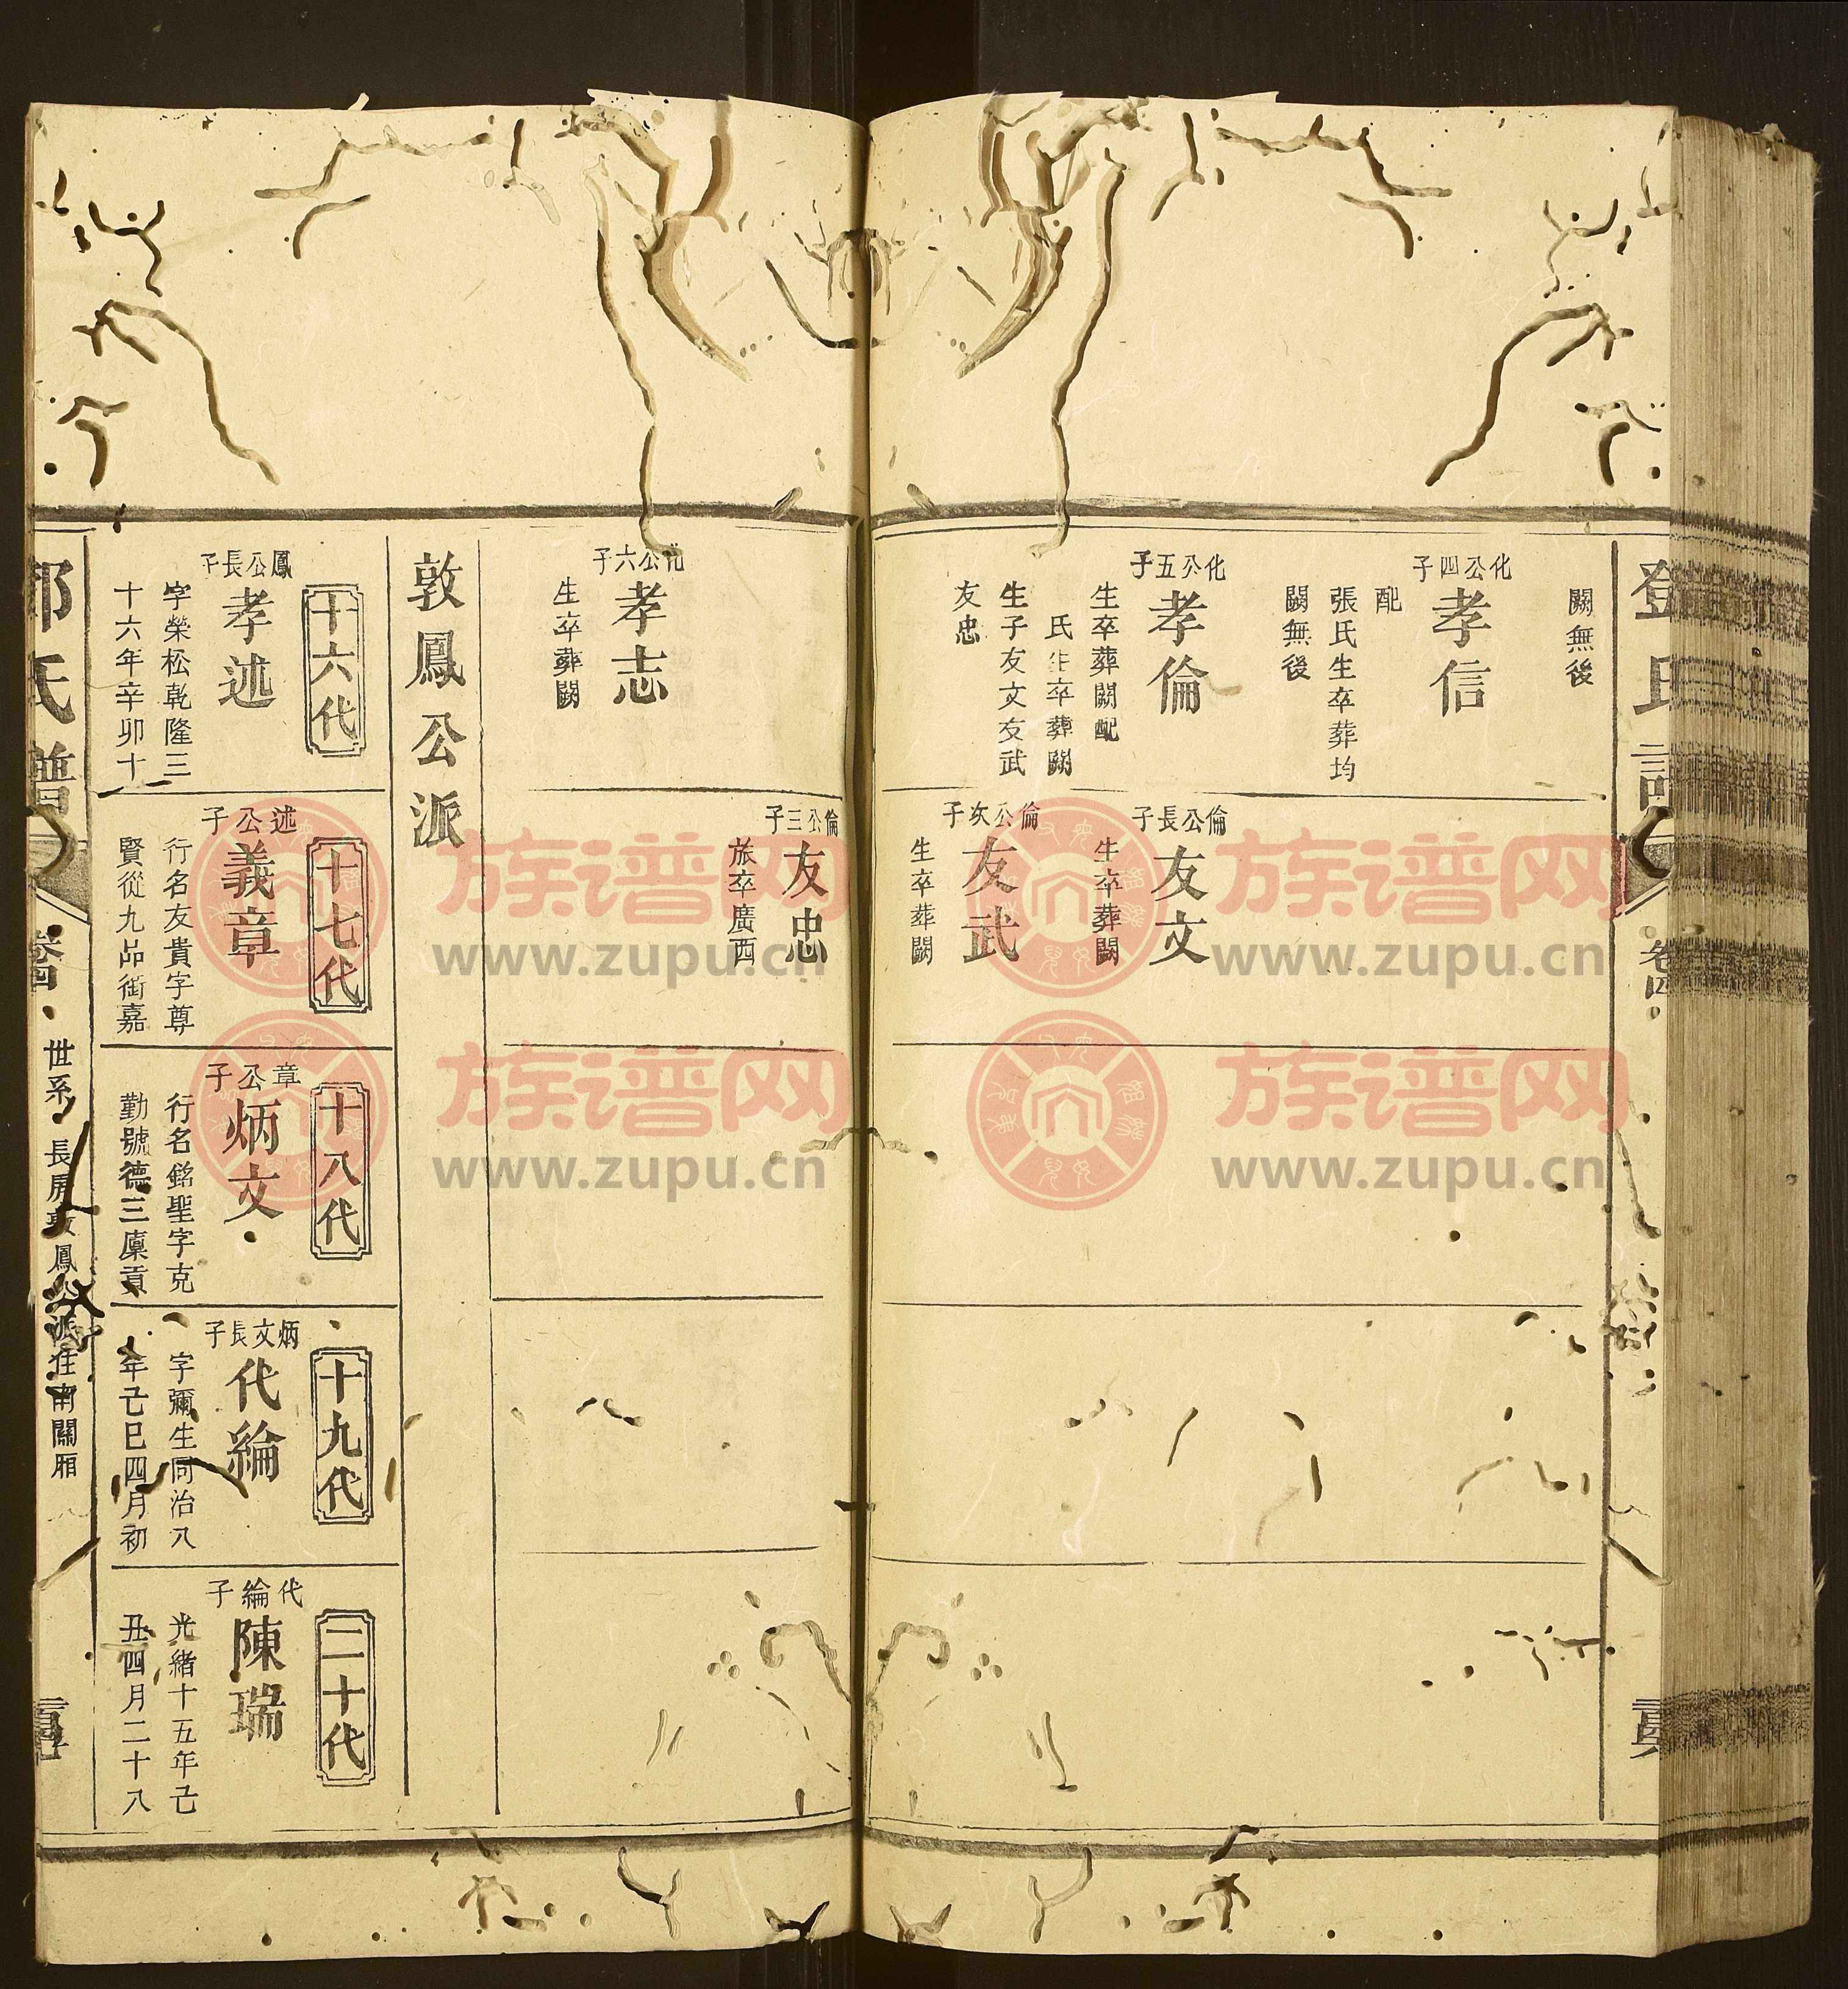 鄧氏譜
卷四
闕無後
化公四子
孝信
配
張氏生卒葬均
闕無後
化公五子
孝倫
生卒葬闕配
氏生卒葬闕
生子友文友武
友忠
倫公長子
友文
生卒葬闕
倫公次子
友武
生卒葬闕
化公六子
孝志
生卒葬闕
倫公三子
友忠
旅卒廣西
敦鳳公派
十六代
鳳公長子
孝述
字榮松乾隆三
十六年辛卯十
十七代
述公子
義章
行名友貴字尊
賢從九品銜嘉
十八代
章公子
炳文
行名銘聖字克
勤號德三廩貢
十九代
炳文長子
代綸
字彌生同治八
年己巳四月初
二十代
代綸子
陳瑞
光緒十五年己
丑四月二十八
氏譜
卷四
世系
長房敦鳳公派住南關廂
族谱网
www.zupu.cn
族谱网
www.zupu.cn
族谱网
www.zupu.cn
族谱网
www.zupu.cn